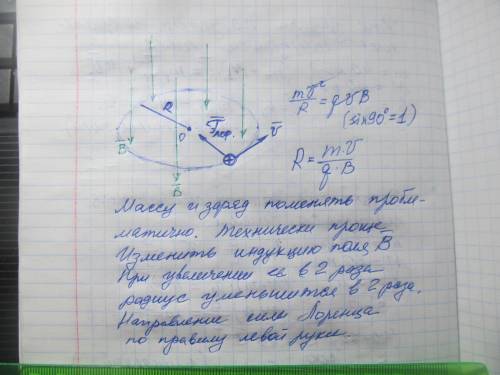 R
O
F̅лор.
V̅
B̅
B̅
mV²/R = qVB
(sin90°=1)
R = m·V/q·B
Массу и заряд поменять пробле-
матично. Технически проще
Изменить индукцию поля B
При увеличении её в 2 раза
радиус уменьшится в 2 раза.
Направление силы Лоренца
по правилу левой руки.